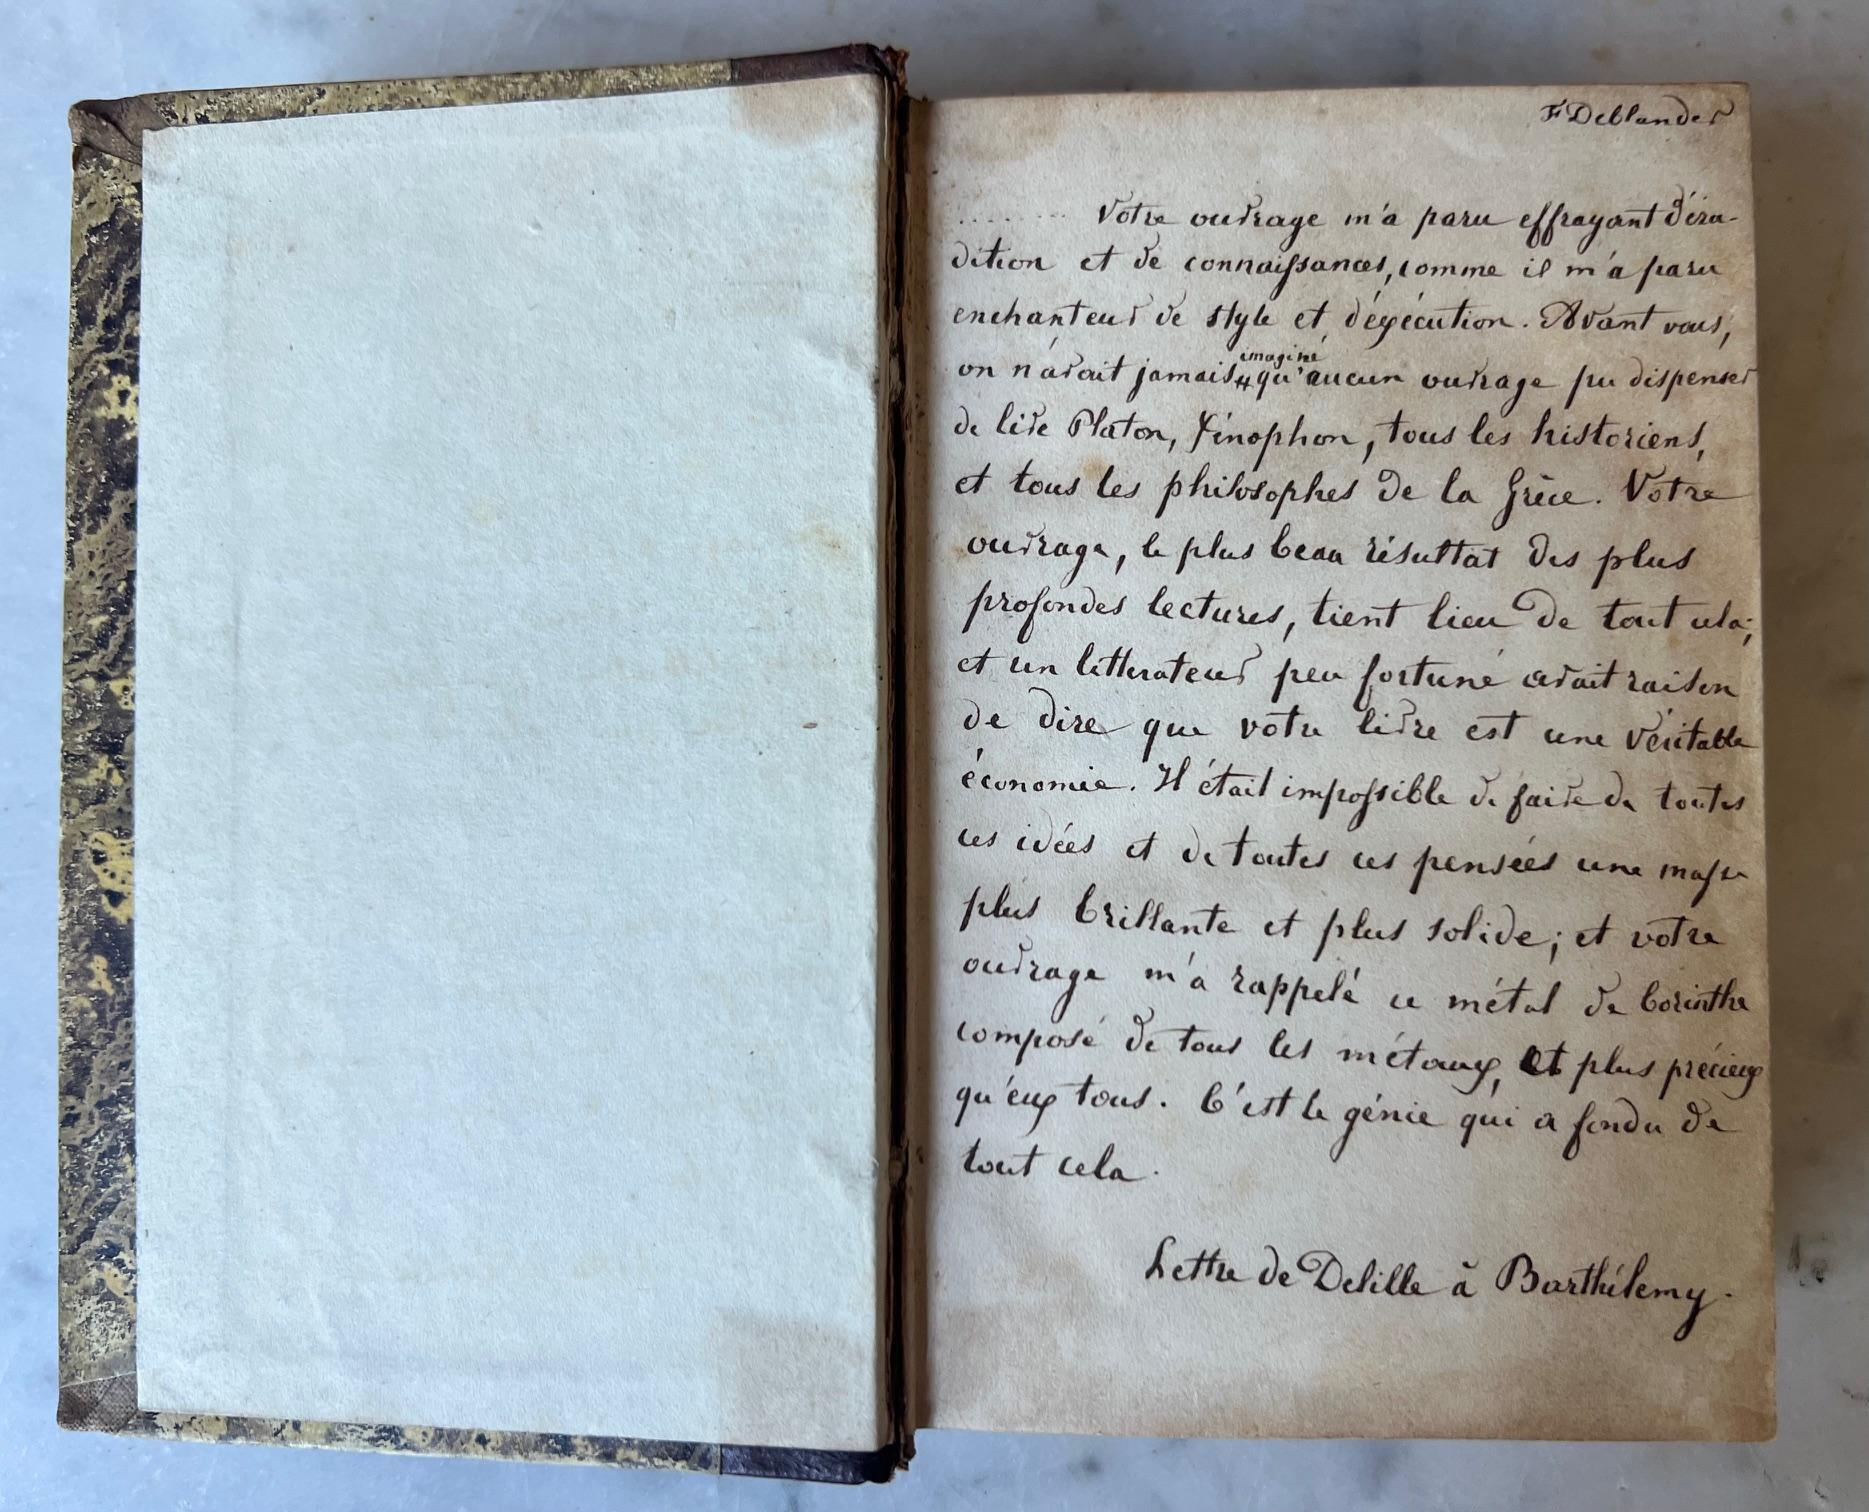 F Deblander
......... Votre ouvrage m'a paru effrayant d'éru-
dition et de connaissances, comme il m'a paru
enchanteur de style et d'éxécution. Avant vous,
on n'avait jamais imaginé qu'aucun ouvrage pu dispenser
de lire Platon, Xénophon, tous les historiens,
et tous les philosophes de la Grèce. Votre
ouvrage, le plus beau résultat des plus
profondes lectures, tient lieu de tout cela;
et un littérateur peu fortuné avait raison
de dire que votre livre est une véritable
économie. Il était impossible de faire de toutes
ces idées et de toutes ces pensées une masse
plus brillante et plus solide; et votre
ouvrage m'a rappelé ce métal de Corinthe
composé de tous les métaux, et plus précieux
qu'eux tous. C'est le génie qui a fondu de
tout cela.
Lettre de Delille à Barthélemy.